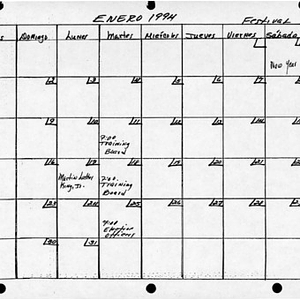 ENERO 1994 Festival
Domingo Lunes Martes Miercoles Jueves Viernes Sábado
1
New Year
2 3 4 5 6 7
9 10 11 12 13 14
7:00
Training
Board
16 17 18 19 20 21
Martin Luther
King, Jr.
7:00
Training
Board
23 24 25 26 27 28
7:00
Election
Officers
30 31